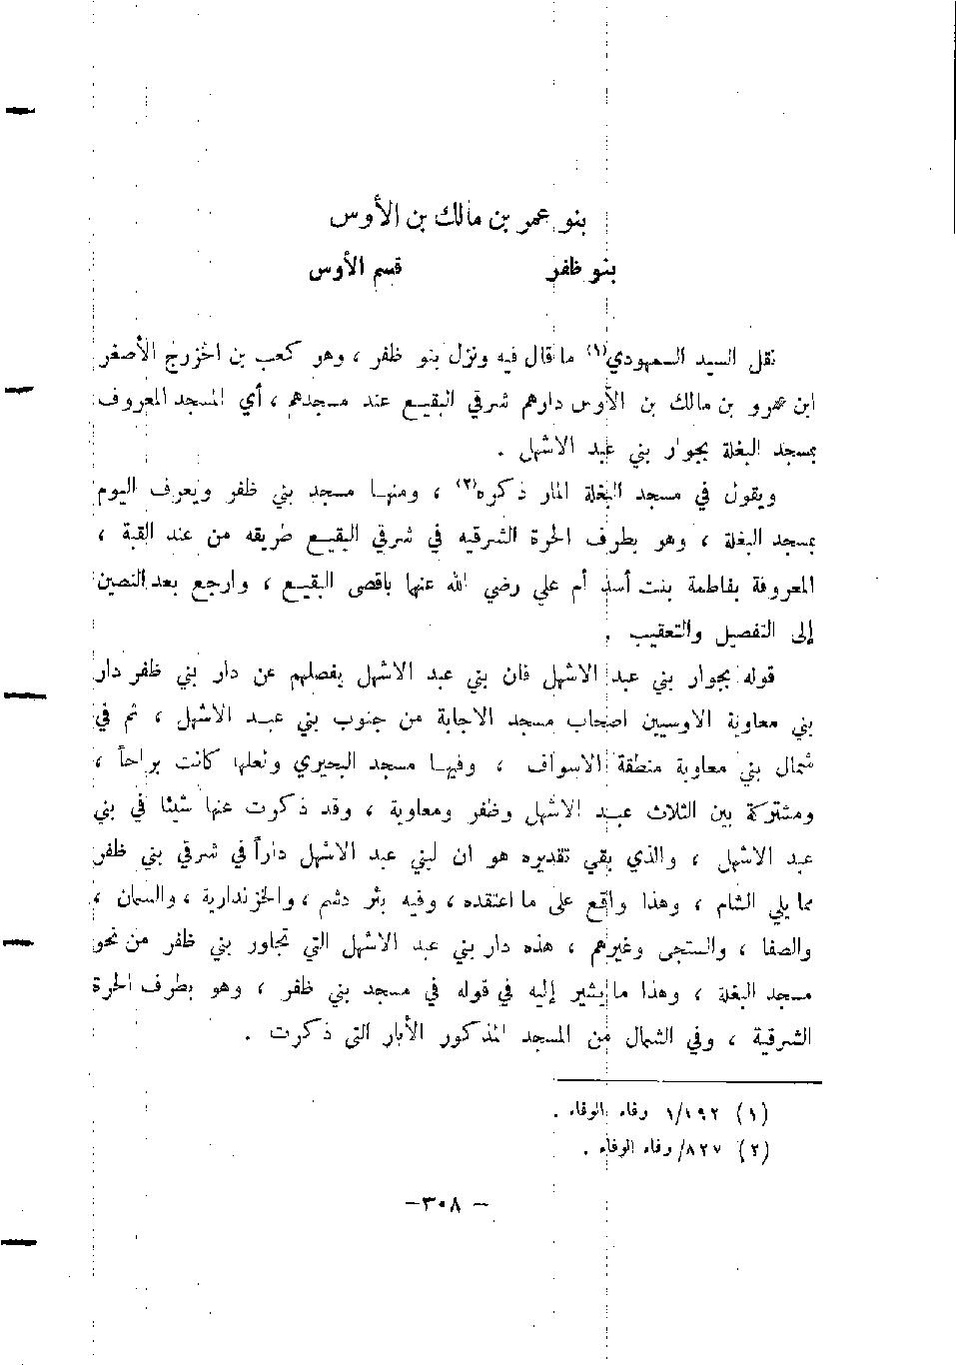 بنو عمر بن مالك بن الأوس
بنو ظفر قسم الأوس
نقل السيد السمهودي(١) ما قال فيه ونزل بنو ظفر ، وهو كعب بن الخزرج الأصغر
ابن عمرو بن مالك بن الأوس دارهم شرقي البقيع عند مسجدهم ، أي المسجد المعروف
بمسجد البغلة بجوار بني عبد الاشهل .
ويقول في مسجد البغلة المار ذكره(٢) ، ومنها مسجد بني ظفر ويعرف اليوم
بمسجد البغلة ، وهو بطرف الحرة الشرقيه في شرقي البقيع طريقه من عند القبة ،
المعروفة بفاطمة بنت أسد أم علي رضي الله عنها باقصى البقيع ، وارجع بعد النصين
إلى التفصيل والتعقيب .
قوله بجوار بني عبد الاشهل فان بني عبد الاشهل يفصلهم عن دار بني ظفر دار
بني معاوية الاوسيين اصحاب مسجد الاجابة من جنوب بني عبد الاشهل ، ثم في
شمال بني معاوية منطقة الاسواف ، وفيها مسجد البحيري ولعلها كانت براحاً ،
ومشتركة بين الثلاث عبد الاشهل وظفر ومعاوية ، وقد ذكرت عنها شيئا في بني
عبد الاشهل ، والذي بقي تقديره هو ان لبني عبد الاشهل داراً في شرقي بني ظفر
مما يلي الشام ، وهذا واقع على ما اعتقده ، وفيه بئر دشم ، والخزندارية ، والسمان ،
والصفا ، والستجى وغيرهم ، هذه دار بني عبد الاشهل التي تجاور بني ظفر من نحو
مسجد البغلة ، وهذا ما يشير إليه في قوله في مسجد بني ظفر ، وهو بطرف الحرة
الشرقية ، وفي الشمال من المسجد المذكور الأبار التي ذكرت .
(١) ١/١٩٢ وفاء الوفاء .
(٢) ٨٢٧/ وفاء الوفاء .
– ٣٠٨–